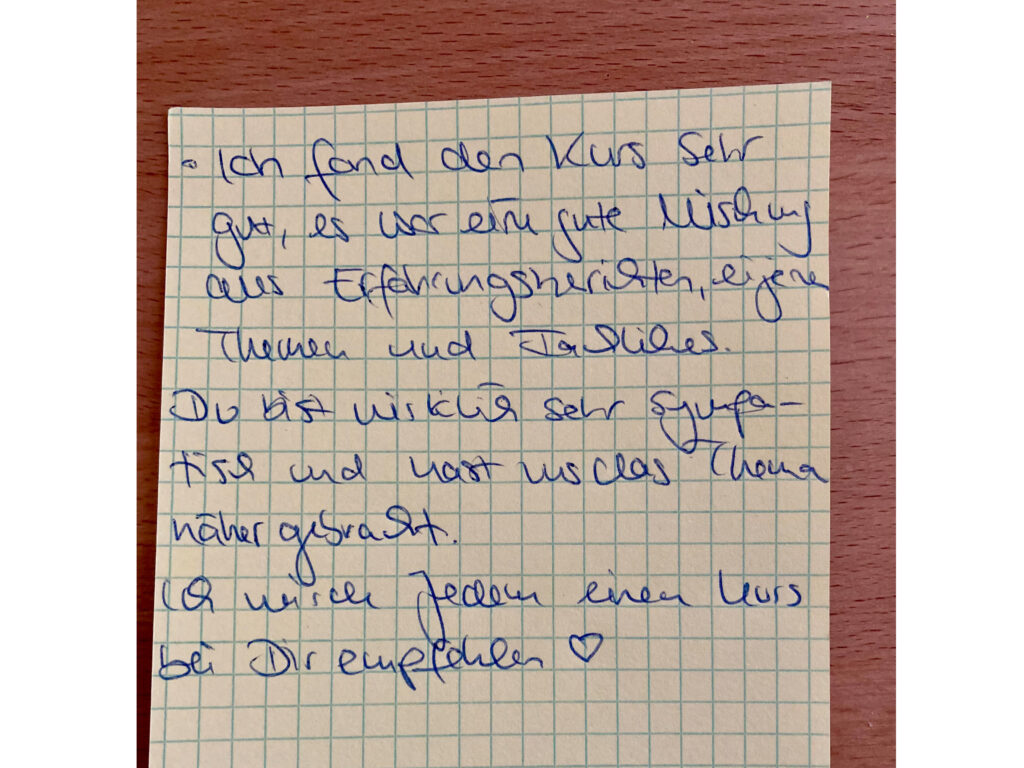 • Ich fand den Kurs sehr
gut, es war eine gute Mischung
aus Erfahrungsberichten, eigene
Themen und Fachliches.
Du bist wirklich sehr sympa-
tisch und hast uns das Thema
näher gebracht.
Ich würde jedem einen Kurs
bei Dir empfehlen ♡